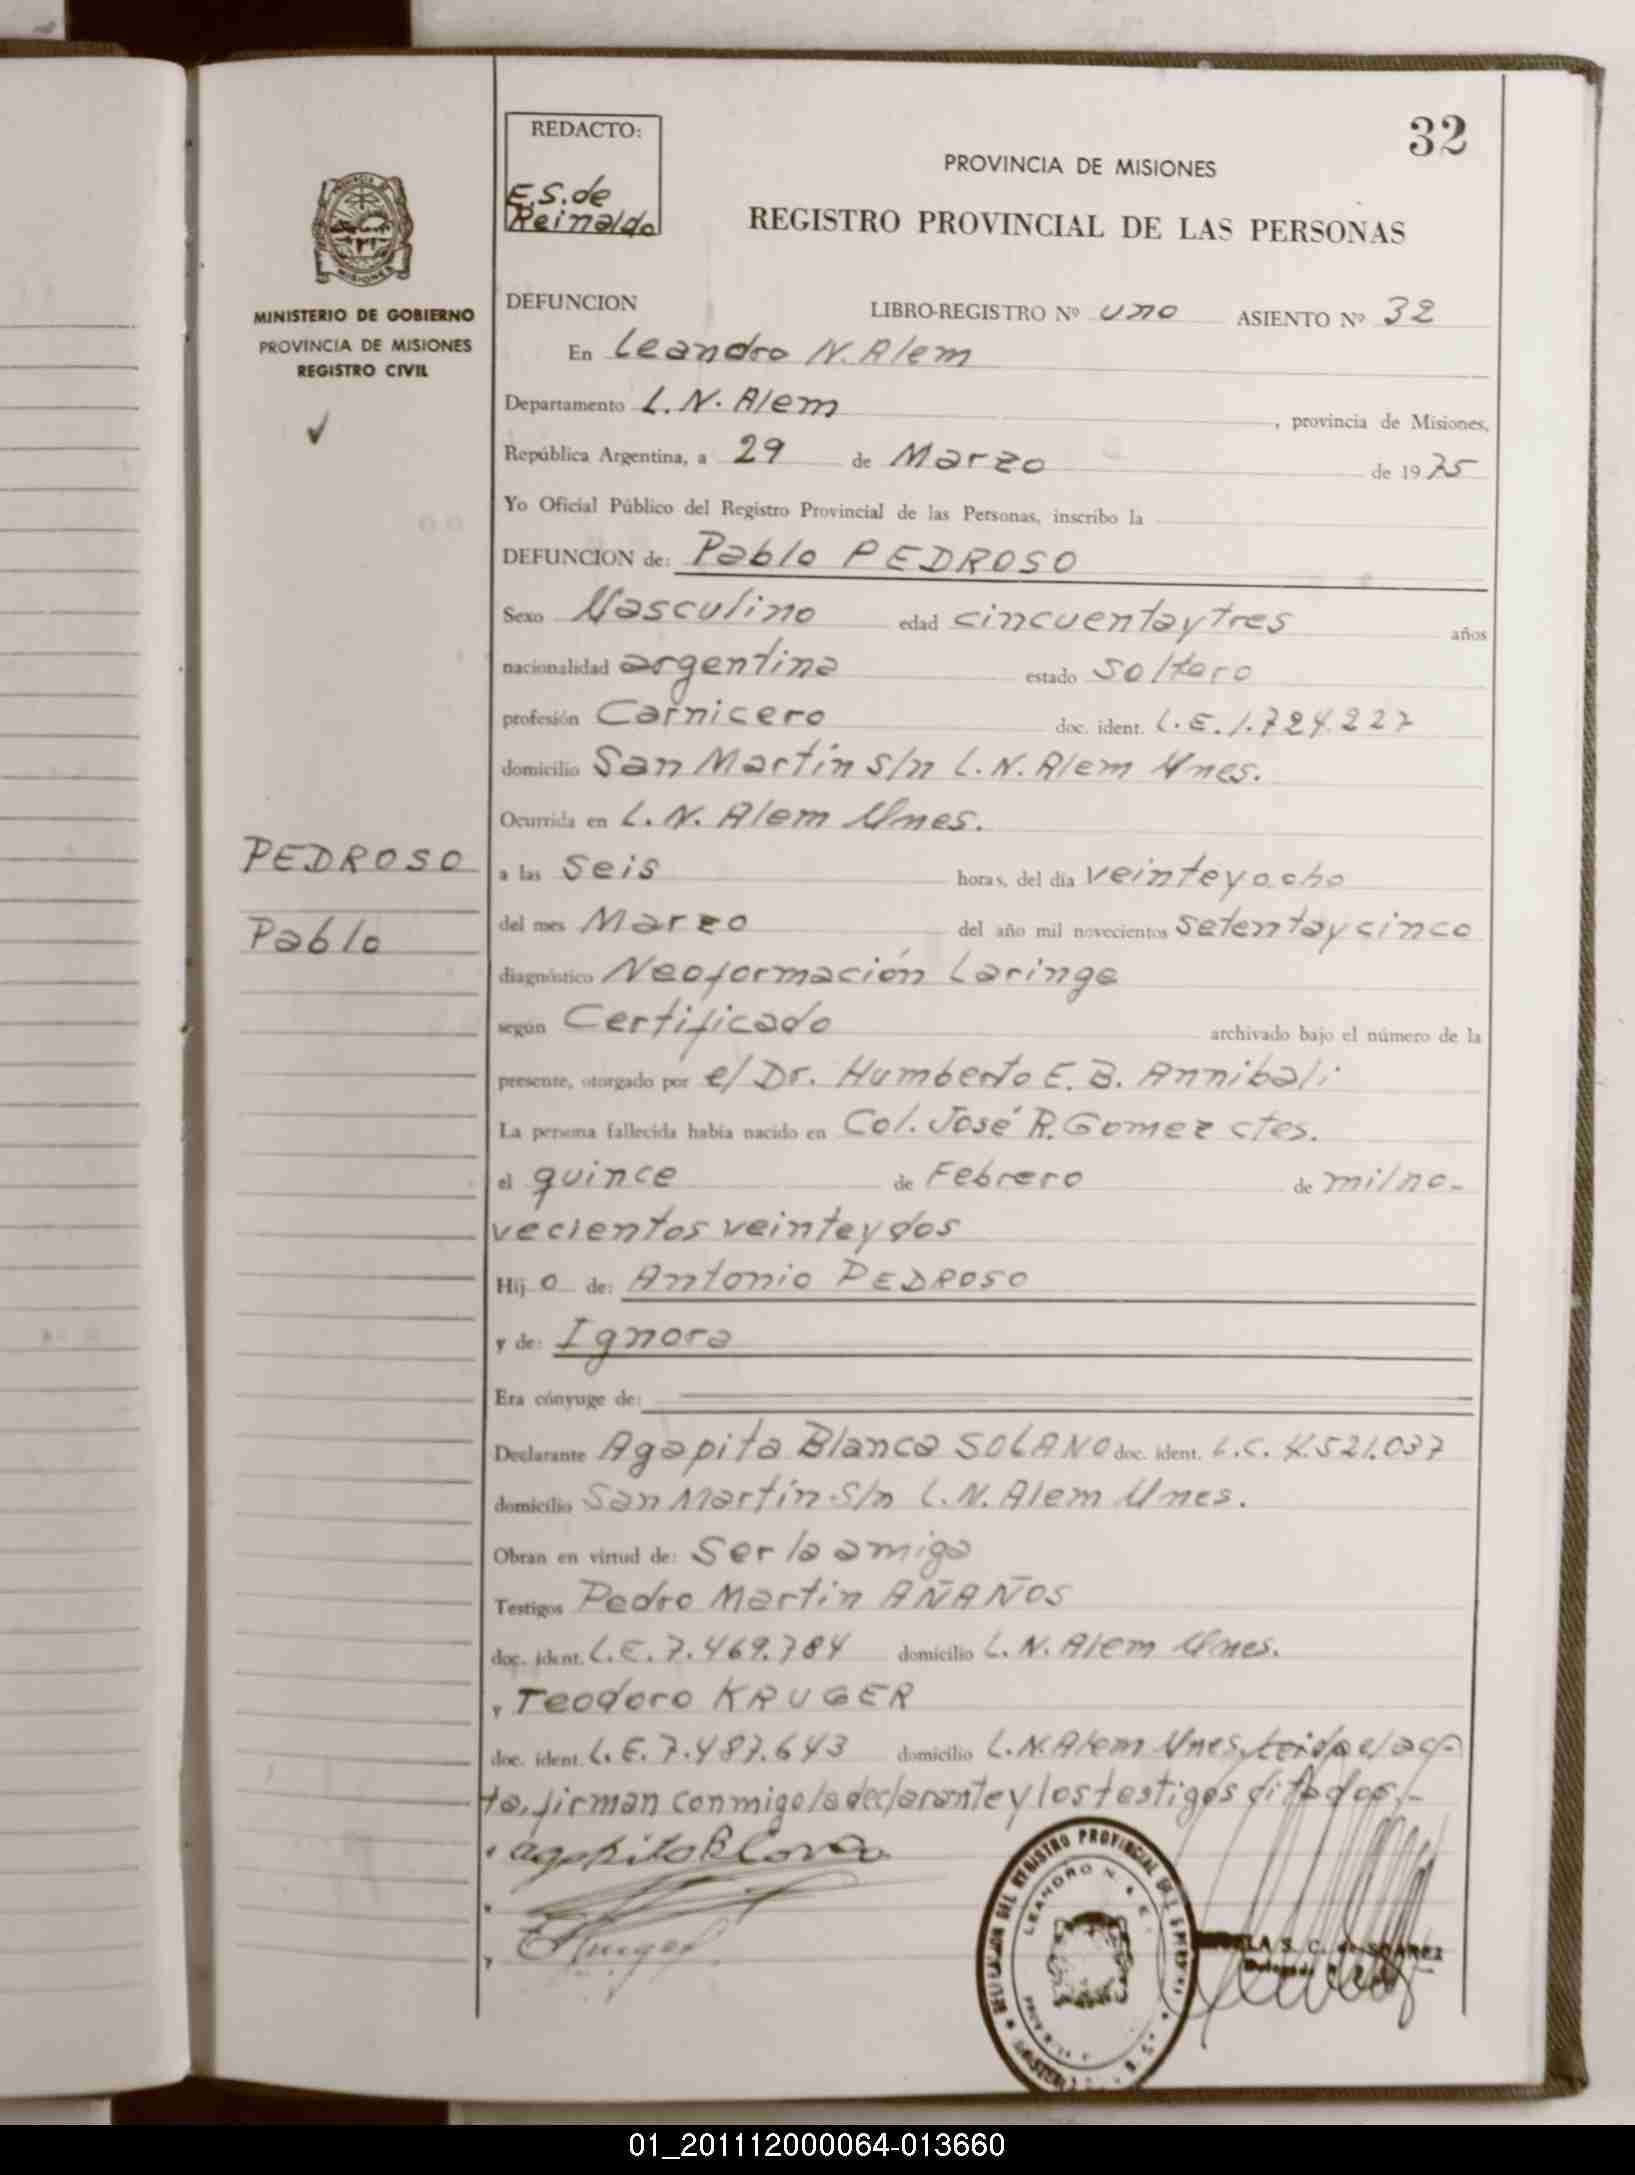 32
REDACTO:
E.S. de
Reinaldo
PROVINCIA DE MISIONES
REGISTRO PROVINCIAL DE LAS PERSONAS
PROVINCIA DE
MISIONES
MINISTERIO DE GOBIERNO
PROVINCIA DE MISIONES
REGISTRO CIVIL
DEFUNCION LIBRO-REGISTRO Nº uno ASIENTO Nº 32
En Leandro N. Alem
Departamento L. N. Alem , provincia de Misiones,
República Argentina, a 29 de Marzo de 1975
Yo Oficial Público del Registro Provincial de las Personas, inscribo la
DEFUNCION de: Pablo PEDROSO
Sexo Masculino edad cincuentaytres años
nacionalidad argentina estado soltero
profesión Carnicero doc. ident. L.E. 1.724.227
domicilio San Martín s/n L.N. Alem Mnes.
Ocurrida en L. N. Alem Mnes.
PEDROSO
Pablo
a las seis horas, del día veinteyocho
del mes Marzo del año mil novecientos setentaycinco
diagnóstico Neoformación Laringe
según Certificado archivado bajo el número de la
presente, otorgado por el Dr. Humberto E. B. Annibali
La persona fallecida había nacido en Col. José R. Gomez Ctes.
el quince de Febrero de milno-
vecientos veinteydos
Hijo de: Antonio PEDROSO
y de: Ignora
Era cónyuge de:
Declarante Agapita Blanca SOLANO doc. ident. L.C. 4.521.037
domicilio San Martín s/n L.N. Alem Mnes.
Obran en virtud de: Ser la amiga
Testigos Pedro Martin AÑAÑOS
doc. ident. L.E. 7.469.784 domicilio L. N. Alem Mnes.
y Teodoro KRUGER
doc. ident. L.E. 7.487.643 domicilio L.N. Alem Mnes. Leida el ac-
ta, firman conmigo la declarante y los testigos citados.-
REGISTRO PROVINCIAL
LEANDRO N.
S. C. de SUAREZ
01_201112000064-013660